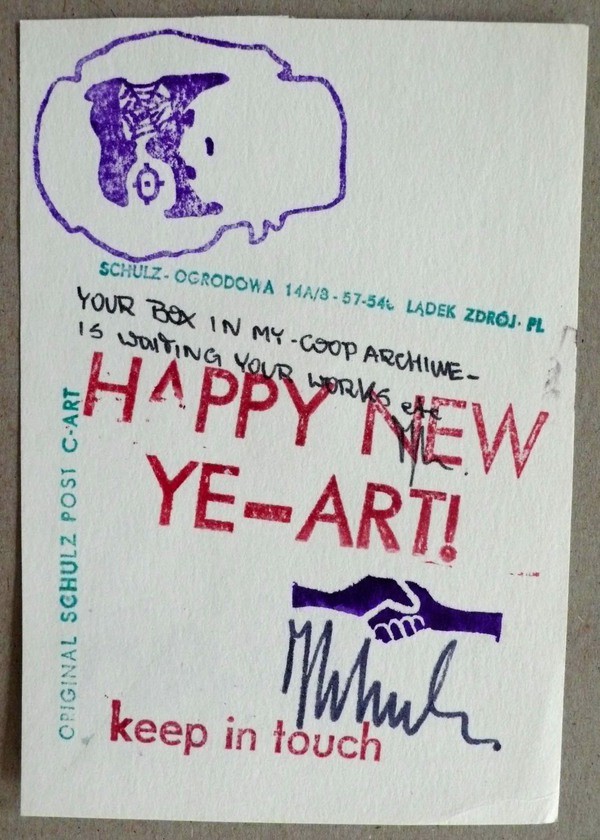 SCHULZ - OGRODOWA 14A/8 - 57-540 LĄDEK ZDRÓJ - PL
YOUR BOX IN MY-COOP ARCHIWE-
IS WAITING YOUR WORKS etc
HAPPY NEW
YE-ART!
ORIGINAL SCHULZ POST C-ART
keep in touch